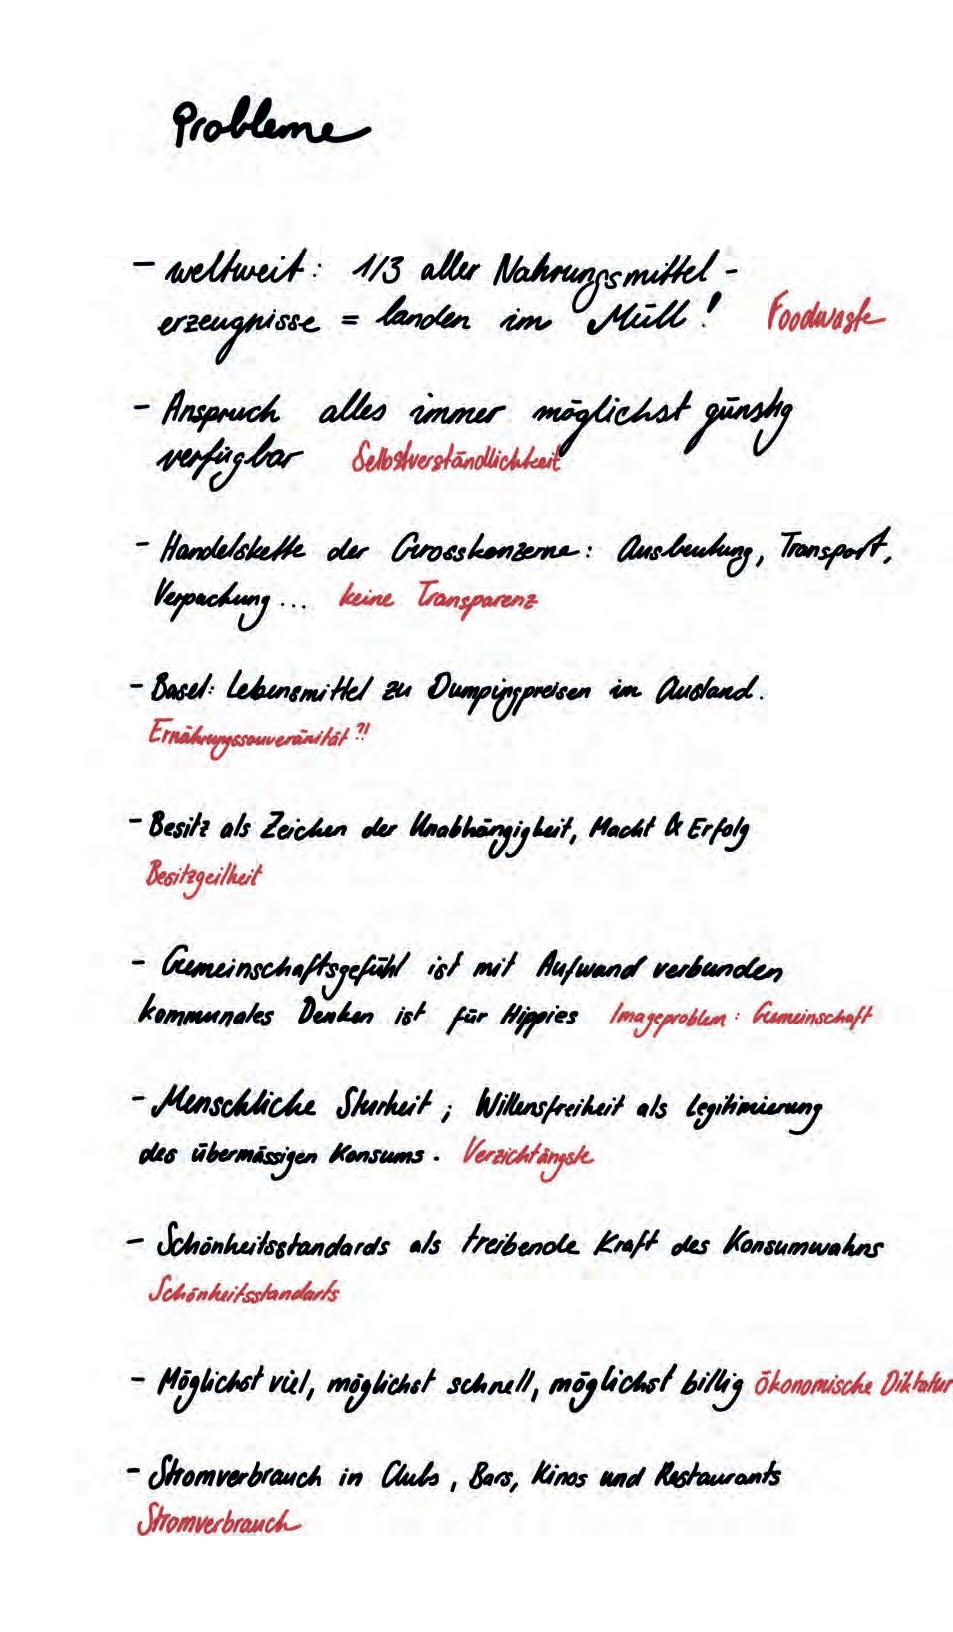 Probleme
- weltweit: 1/3 aller Nahrungsmittel-
erzeugnisse = landen im Müll! Foodwaste
- Anspruch alles immer möglichst günstig
verfügbar Selbstverständlichkeit
- Handelskette der Grosskonzerne: Ausbeutung, Transport,
Verpackung... keine Transparenz
- Basel: Lebensmittel zu Dumpingpreisen im Ausland.
Ernährungssouveränität?!
- Besitz als Zeichen der Unabhängigkeit, Macht & Erfolg
Besitzgeilheit
- Gemeinschaftsgefühl ist mit Aufwand verbunden
kommunales Denken ist für Hippies Imageproblem: Gemeinschaft
- Menschliche Sturheit; Willensfreiheit als Legitimierung
des übermässigen Konsums. Verzichtängste
- Schönheitsstandards als treibende Kraft des Konsumwahns
Schönheitsstandarts
- Möglichst viel, möglichst schnell, möglichst billig ökonomische Diktatur
- Stromverbrauch in Clubs, Bars, Kinos und Restaurants
Stromverbrauch